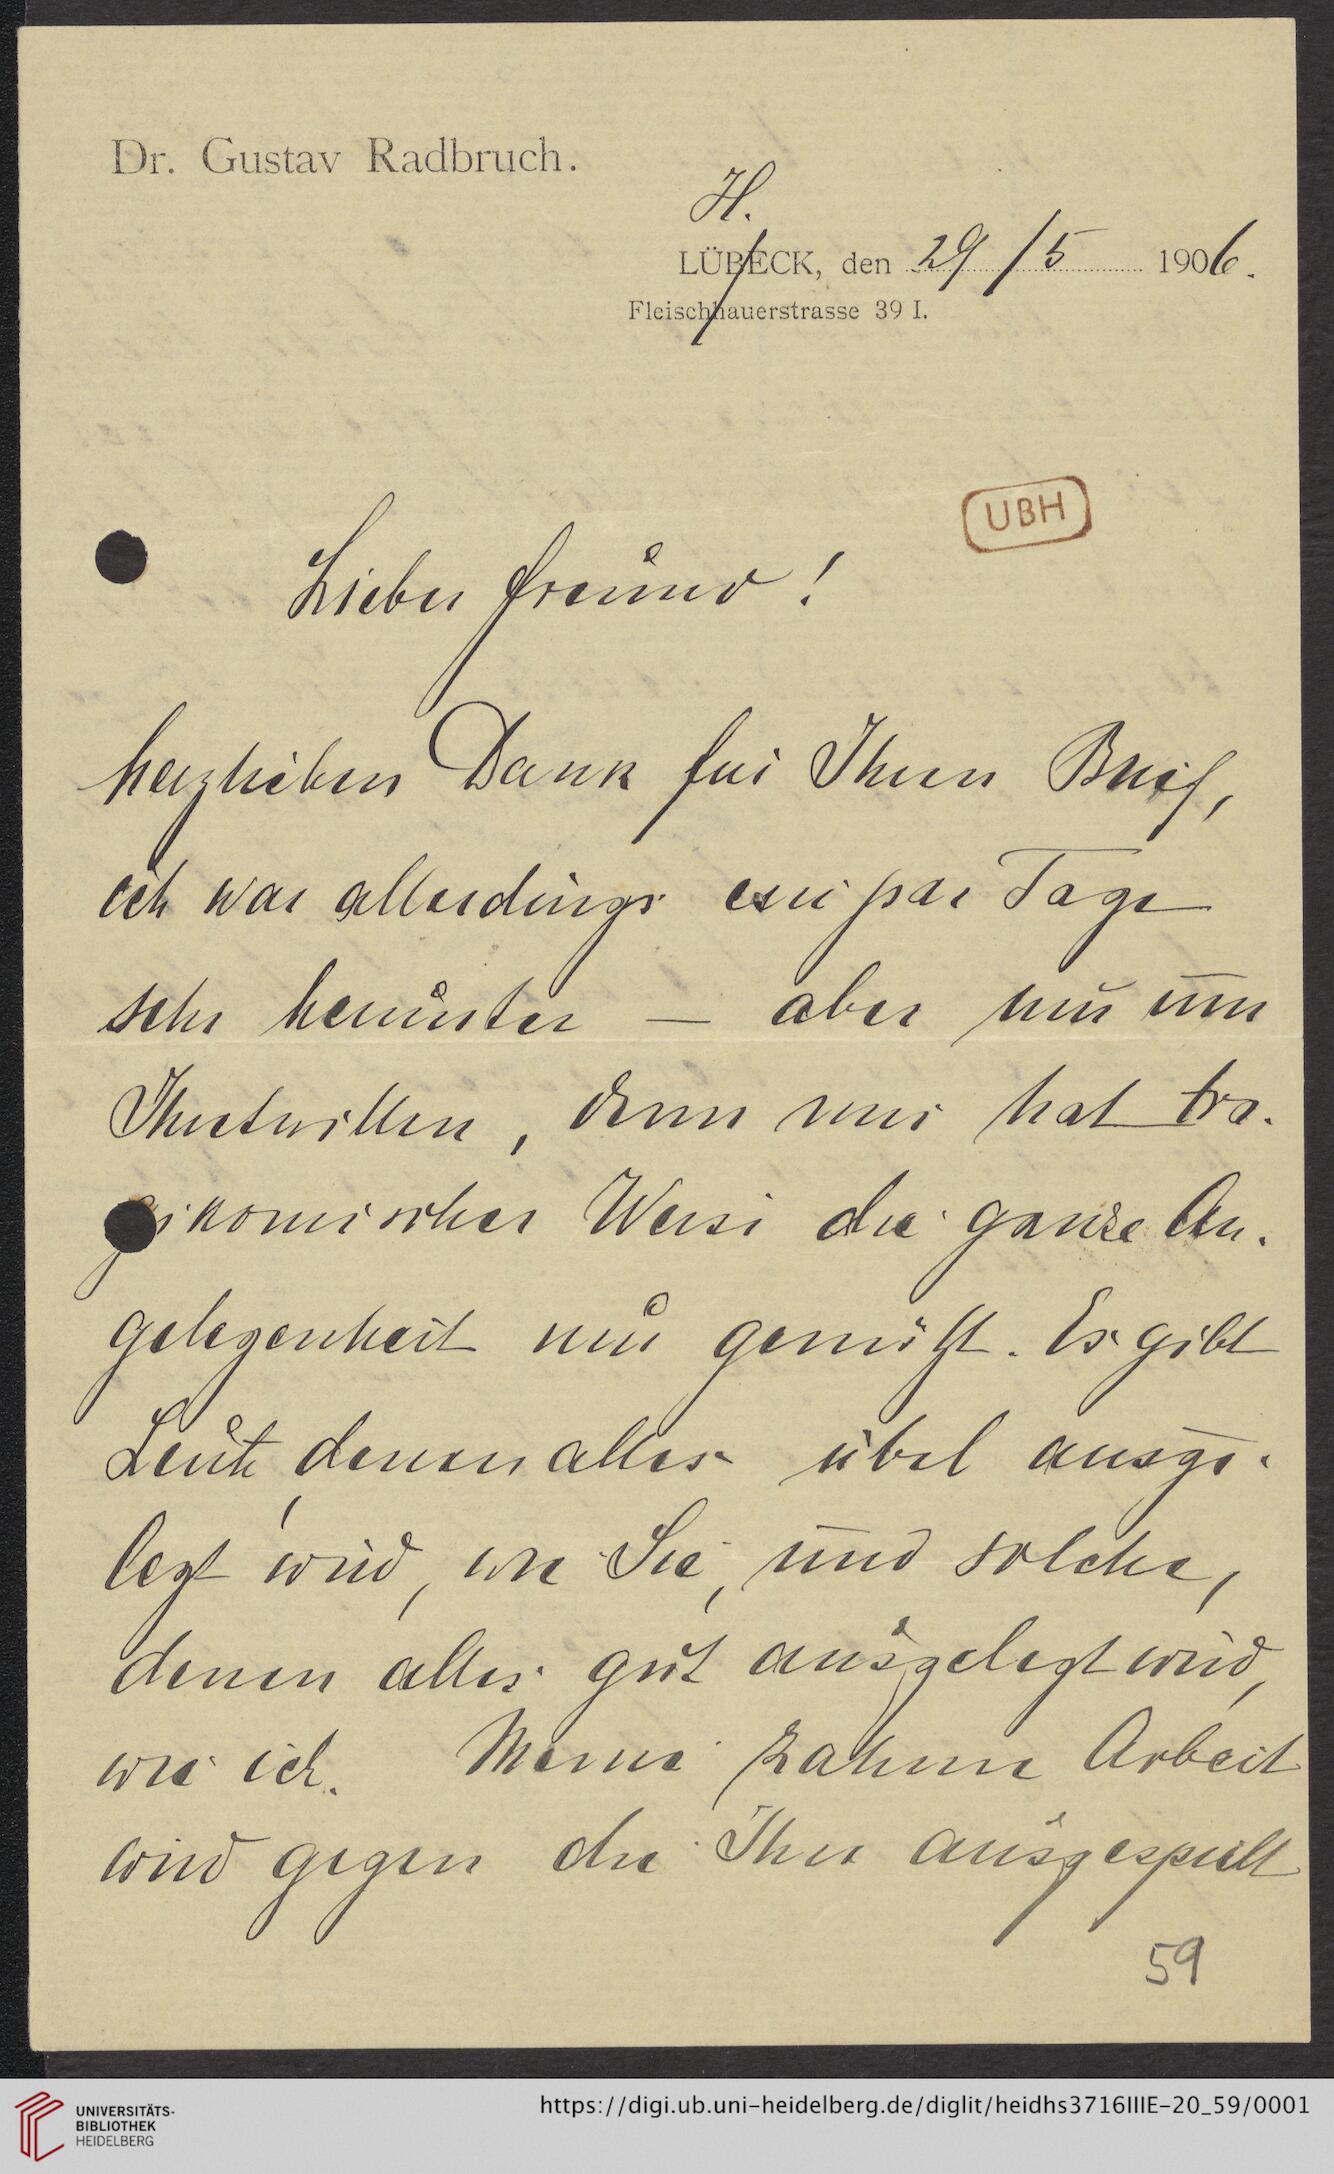 Dr. Gustav Radbruch.
H.
LÜBECK, den 29/5 1906.
Fleischhauerstrasse 39 I.
UBH
Lieber Freund!
herzlichen Dank für Ihren Brief,
ich war allerdings ein par Tage
sehr herunter — aber nur um
Ihretwillen, denn mir hat tra-
gikomischer Weise die ganze An-
gelegenheit nur genützt. Es gibt
Leute, denen alles übel ausge-
legt wird, wie Sie, und solche,
denen alles gut ausgelegt wird,
wie ich. Meine zahme Arbeit
wird gegen die Ihre ausgespielt
59
UNIVERSITÄTS-
BIBLIOTHEK
HEIDELBERG
https://digi.ub.uni-heidelberg.de/diglit/heidhs3716IIIE-20_59/0001